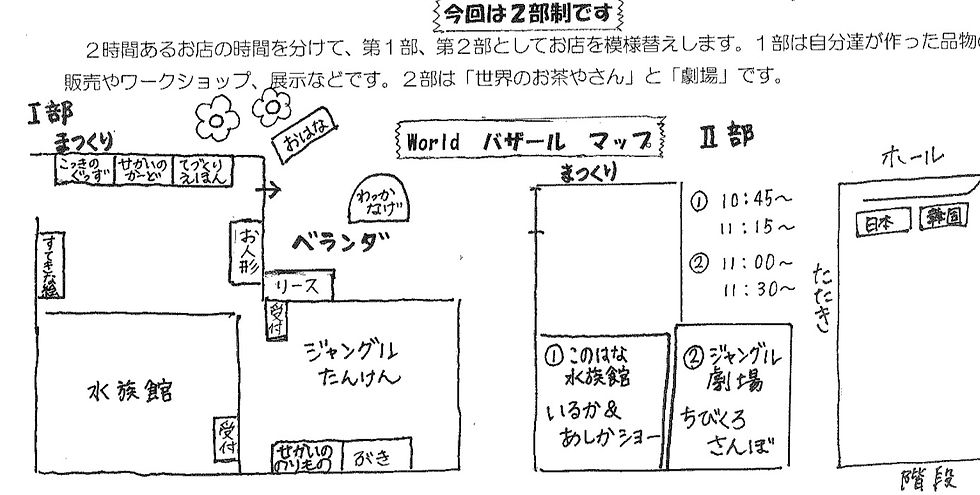 今回は２部制です
２時間あるお店の時間を分けて、第１部、第２部としてお店を模様替えします。１部は自分達が作った品物の
販売やワークショップ、展示などです。２部は「世界のお茶やさん」と「劇場」です。
I部
まつくり
こっきの
ぐっず
せかいの
かーど
てづくり
えほん
おはな
わっか
なげ
ベランダ
すてきな絵
お人形
リース
受付
ジャングル
たんけん
水族館
受付
せかいの
のりもの
World バザール マップ
II部
まつくり
① 10:45～
11:15～
② 11:00～
11:30～
① このはな
水族館
いるか&
あしかショー
② ジャングル
劇場
ちびくろ
さんぼ
ホール
日本
韓国
たたき
階段